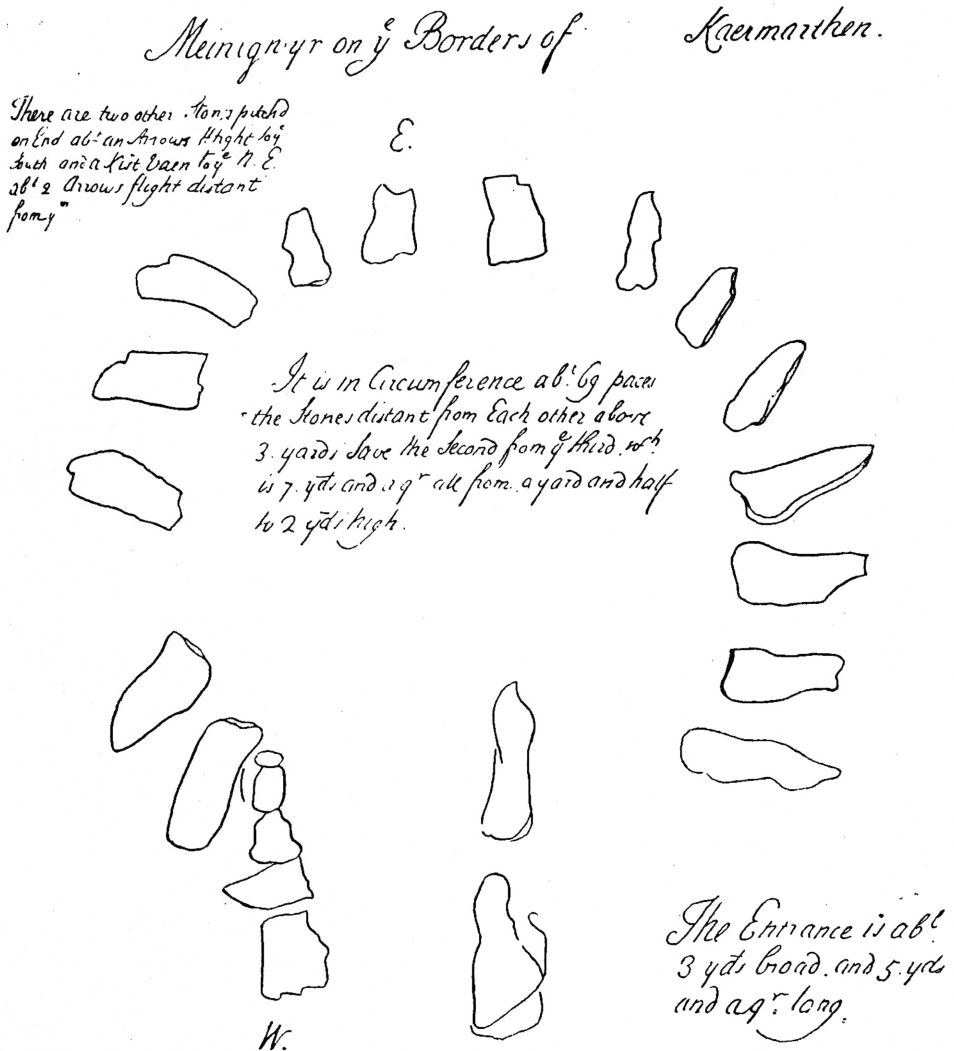 Meinigwyr on yᵉ Borders of Kaermarthen.
There are two other Stones pitch'd
on End abᵗ an Arrows flight to yᵉ
South and a Kist Vaen to yᵉ N. E.
abᵗ 2 Arrows flight distant
from yᵐ
E.
It is in Circumference abᵗ 69 paces
the Stones distant from Each other above
3 yards save the Second from yᵉ third wᶜʰ
is 7. yds and a qʳ all from a yard and half
to 2 yds high.
The Entrance is abᵗ
3 yds broad. and 5. yds
and a qʳ. long.
W.